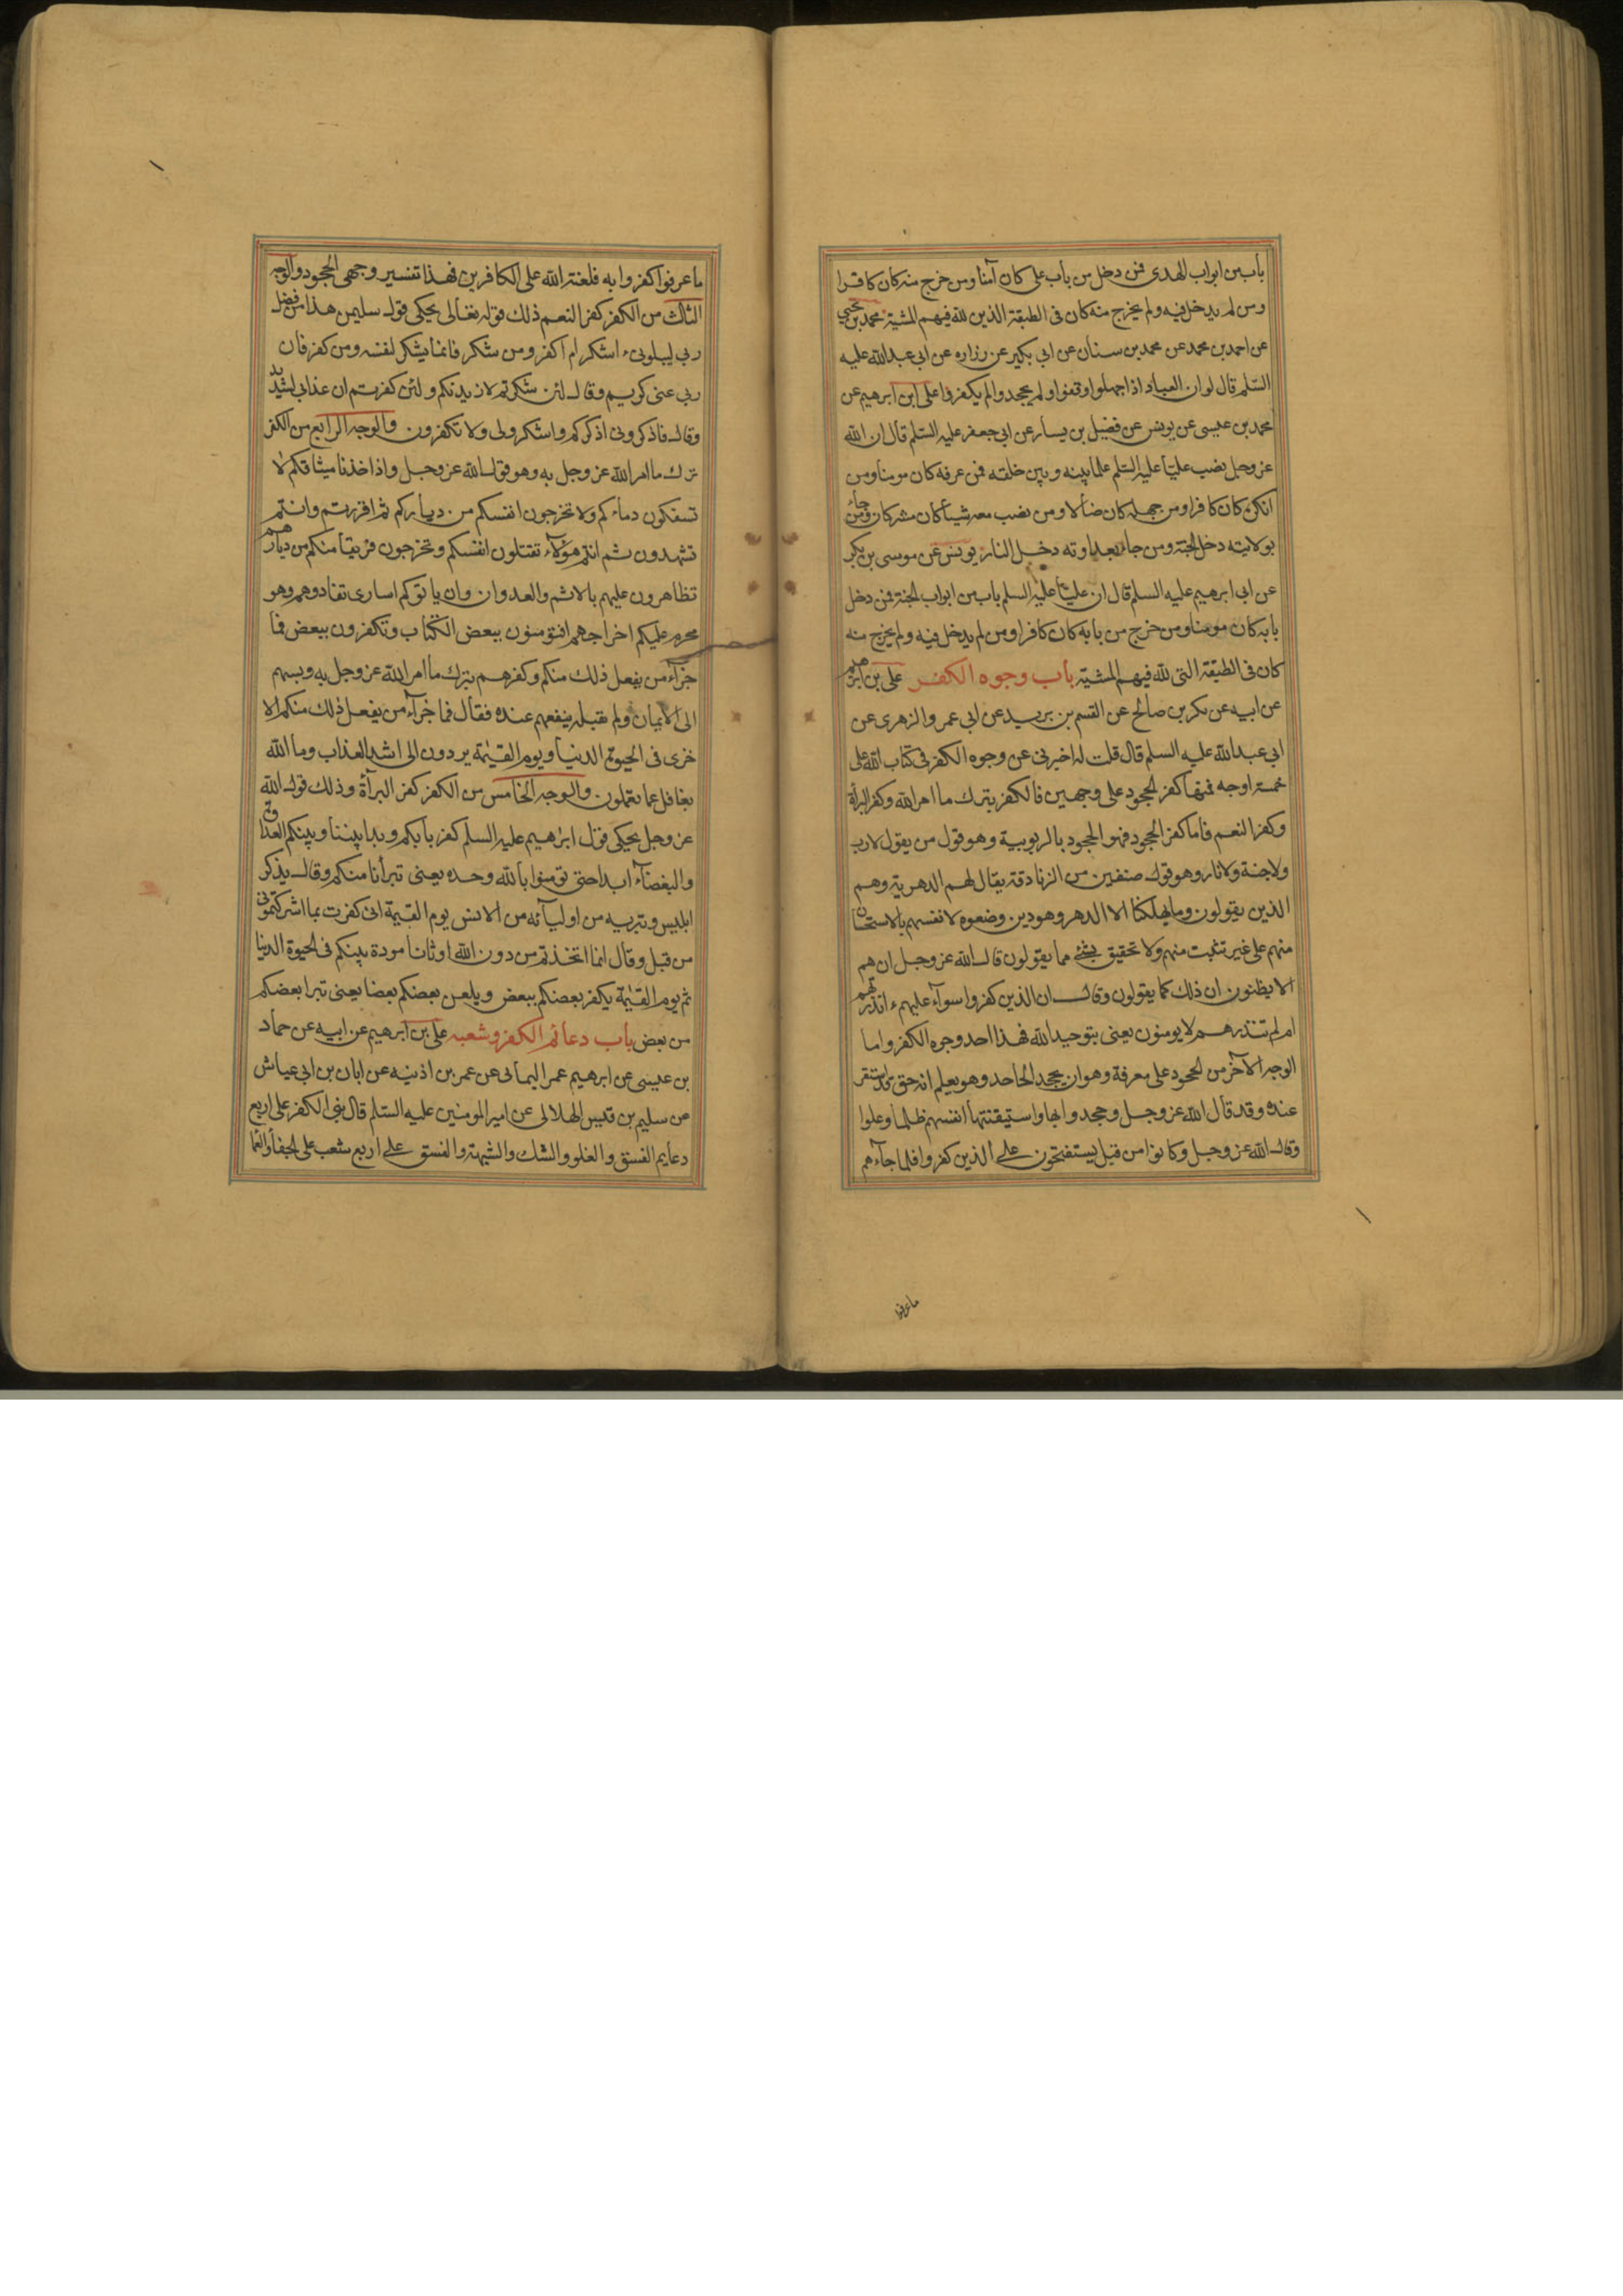 باب من ابواب الهدى فمن دخل من باب على كان آمنا ومن خرج منه كان كافرا
ومن لم يدخل فيه ولم يخرج منه كان فى الطبقة الذين لله فيهم المشية محمد بن يحيى
عن احمد بن محمد عن محمد بن سنان عن ابى بكير عن زراره عن ابى عبد الله عليه
السّلم قال لو ان العباد اذا جهلوا وقفوا ولم يجحدوا لم يكفروا على ابن ابرهيم عن
محمد بن عيسى عن يونس عن فضيل بن يسار عن ابى جعفر عليه السّلم قال ان الله
عز وجل نصب عليّا عليه السّلم علما بينه وبين خلقه فمن عرفه كان مومنا ومن
انكره كان كافرا ومن جهله كان ضالا ومن نصب معه شيئا كان مشركا ومن جاء
بولايته دخل الجنة ومن جاء بعداوته دخل النار يونس عن موسى بن بكر
عن ابى ابرهيم عليه السلم قال ان عليّا عليه السلم باب من ابواب الجنة فمن دخل
بابه كان مومنا ومن خرج من بابه كان كافرا ومن لم يدخل فيه ولم يخرج منه
كان فى الطبقة التى لله فيهم المشية باب وجوه الكفر على بن ابرهيم
عن ابيه عن بكر بن صالح عن القسم بن بريد عن ابى عمرو الزهرى عن
ابى عبد الله عليه السلم قال قلت له اخبرنى عن وجوه الكفر فى كتاب الله على
خمسة اوجه فمنها كفر الجحود على وجهين فالكفر بترك ما امر الله وكفر البرأة
وكفر النعم فاما كفر الجحود فهو الجحود بالربوبية وهو قول من يقول لا رب
ولا جنة ولا نار وهو قول صنفين من الزنادقة يقال لهم الدهرية وهم
الذين يقولون وما يهلكنا الا الدهر وهو دين وضعوه لانفسهم بالاستحسان
منهم على غير تثبت منهم ولا تحقيق بشئ مما يقولون قال الله عز وجل ان هم
الا يظنون ان ذلك كما يقولون وقال ان الذين كفروا سوآء عليهم ءانذرتهم
ام لم تنذرهم لا يومنون يعنى بتوحيد الله فهذا احد وجوه الكفر واما
الوجه الآخر من الجحود على معرفة وهو ان يجحد الجاحد وهو يعلم انه حق قد استقر
عنده وقد قال الله عز وجل وجحدوا بها واستيقنتها انفسهم ظلما وعلوا
وقال الله عز وجل وكانوا من قبل يستفتحون على الذين كفروا فلما جآءهم
ما عرفوا
ما عرفوا كفروا به فلعنة الله على الكافرين فهذا تفسير وجهى الجحود والوجه
الثالث من الكفر كفر النعم ذلك قوله تعالى يحكى قول سليمن هذا من فضل
ربى ليبلونى ءاشكر ام اكفر ومن شكر فانما يشكر لنفسه ومن كفر فان
ربى غنى كريم وقال لئن شكرتم لازيدنكم ولئن كفرتم ان عذابى لشديد
وقال فاذكرونى اذكركم واشكرولى ولا تكفرون والوجه الرابع من الكفر
ترك ما امر الله عز وجل به وهو قول الله عز وجل واذ اخذنا ميثاقكم لا
تسفكون دماءكم ولا تخرجون انفسكم من دياركم ثم اقررتم وانتم
تشهدون ثم انتم هؤلآء تقتلون انفسكم وتخرجون فريقا منكم من ديارهم
تظاهرون عليهم بالاثم والعدوان وان ياتوكم اسارى تفادوهم وهو
محرم عليكم اخراجهم افتؤمنون ببعض الكتاب وتكفرون ببعض فما
جزآء من يفعل ذلك منكم وكفرهم بترك ما امر الله عز وجل به ونسبهم
الى الايمان ولم يقبله ينفعهم عنده فقال فما جزآء من يفعل ذلك منكم الا
خزى فى الحيوة الدنيا ويوم القيمة يردون الى اشد العذاب وما الله
بغافل عما تعملون والوجه الخامس من الكفر كفر البرآة وذلك قول الله
عز وجل يحكى قول ابراهيم عليه السلم كفرنا بكم وبدا بيننا وبينكم العداوة
والبغضآء ابدا حتى تؤمنوا بالله وحده يعنى تبرأنا منكم وقال يذكر
ابليس وتبريه من اوليآئه من الانس يوم القيمة انى كفرت بما اشركتمونى
من قبل وقال انما اتخذتم من دون الله اوثانا مودة بينكم فى الحيوة الدنيا
ثم يوم القيمة يكفر بعضكم ببعض ويلعن بعضكم بعضا يعنى تبرا بعضكم
من بعض باب دعائم الكفر وشعبه على بن ابرهيم عن ابيه عن حماد
بن عيسى عن ابرهيم عمر اليمانى عن عمر بن اذينه عن ابان بن ابى عياش
عن سليم بن قيس الهلالى عن امير المومنين عليه السّلم قال بنى الكفر على اربع
دعايم الفسق والغلو والشك والشبهة والفسق على اربع شعب على الجفا والعما